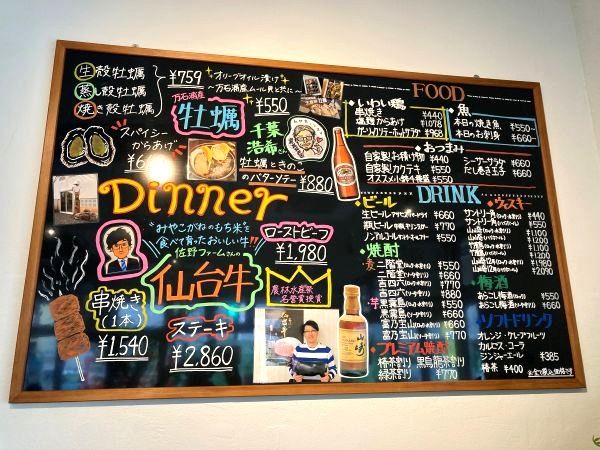 生 殻牡蠣
蒸し殻牡蠣
焼き殻牡蠣
¥759
オリーブオイル漬け
〜万石浦産ムール貝と共に〜
¥550
万石浦産
牡蠣
スパイシー
からあげ
千葉
浩希さん
牡蠣ときのこ
のバターソテー
¥880
Dinner
"みやこがねのもち米"を
食べて育ったおいしい牛!!
佐野ファームさんの
仙台牛
ローストビーフ
¥1,980
農林水産祭
名誉賞授賞
串焼き
(1本)
¥1,540
ステーキ
¥2,860
FOOD
いわい鶏
串焼き ¥440
塩麹からあげ ¥1,078
ガーリックソテーホットサラダ ¥968
魚
本日の焼き魚 ¥550〜
本日のお刺身 ¥660〜
おつまみ
自家製お漬け物 ¥440
自家製カクテキ ¥550
オススメ小鉢4種盛 ¥550
シーザーサラダ ¥660
だしまき玉子 ¥660
DRINK
ビール
生ビール ¥660
瓶ビール ¥770
ノンアルコール ¥550
焼酎
麦
二階堂 ¥550
二階堂 ¥660
吉四六 ¥550
吉四六 ¥660
芋
黒霧島 ¥550
黒霧島 ¥660
富乃宝山 ¥660
富乃宝山 ¥770
プレミアム焼酎
椿茶割り 黒烏龍茶割り
緑茶割り ¥770
ウィスキー
サントリー角 ¥440
サントリー角 ¥550
¥1,100
¥1,200
¥1,100
¥1,200
¥1980
¥2090
梅酒
あらごし梅酒 ¥550
あらごし梅酒 ¥660
ソフトドリンク
オレンジ・グレープフルーツ
カルピス・コーラ
ジンジャーエール ¥385
椿茶 ¥400
※全て税込価格です